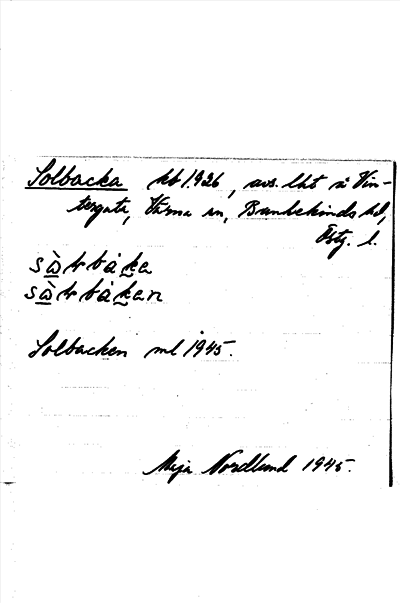 Solbacka kb 1926, avs. lht i Vin-
tergata, Värna sn, Bankekinds hd,
Östg. l.
sὰℏbάka
sὰℏbάkan
Solbacken ml 1945.
Maja Nordlund 1945.